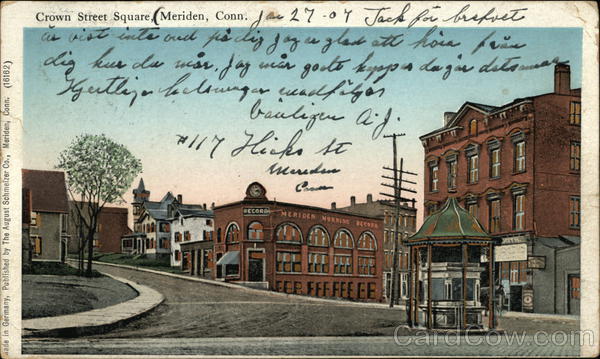 Crown Street Square, Meriden, Conn. Jan 27-07 Jack för brefvet
är vist inte ond på dig jag är glad att höra från
dig hur du mår, jag mår godt hoppas du gör detsamma
Hjertliga helsningar
vänligen A.J.
#117 Hicks st
Meriden
Conn
RECORD MERIDEN MORNING RECORD
Made in Germany, Published by The August Schmelzer Co., Meriden, Conn. (16162)
CardCow.com